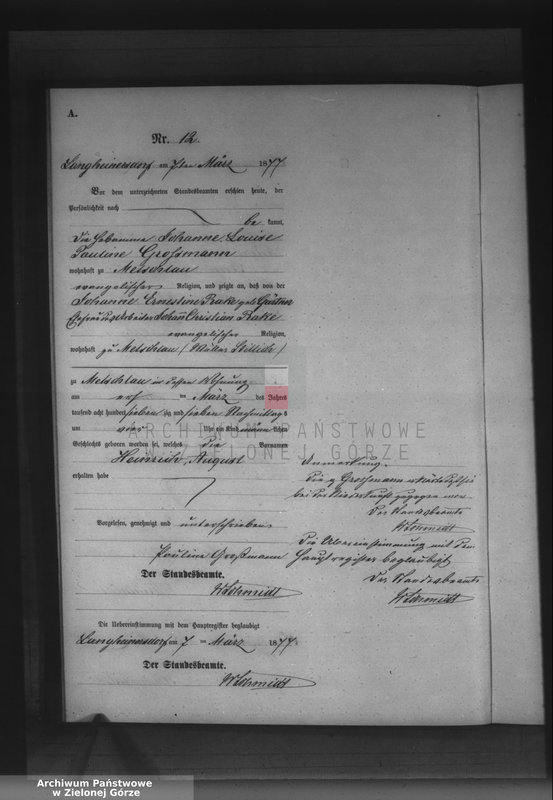 A.
Nr. 12.
Langheinersdorf am 7ten März 1877.
Vor dem unterzeichneten Standesbeamten erschien heute, der
Persönlichkeit nach
be kannt,
die Hebamme Johanne Louise
Pauline Grossmann
wohnhaft zu Metschlau
evangelischer Religion, und zeigte an, daß von der
Johanne Ernestine Rake geb.
Ehefrau des Arbeiter Johan Christian Rake
evangelischer Religion,
wohnhaft zu Metschlau
zu Metschlau in dessen Wohnung
am März des Jahres
tausend acht hundert sieben zig und sieben Nachmittag s
um vier Uhr ein Kind männ lichen
Geschlechts geboren worden sei, welches die Vornamen
Heinrich August
erhalten habe
Vorgelesen, genehmigt und unterschrieben
Pauline Großmann
Der Standesbeamte.
W Schmidt
Die Uebereinstimmung mit dem Hauptregister beglaubigt
Langheinersdorf am 7 ten März 1877.
Der Standesbeamte.
W Schmidt
Anmerkung.
Die p Grossmann
bei der Niederkunft zugegen war
Der Standesbeamte
W Schmidt
Die Uebereinstimmung mit dem
Hauptregister beglaubigt
Der Standesbeamte
W Schmidt
ARCHIWUM PAŃSTWOWE
W ZIELONEJ GÓRZE
Archiwum Państwowe
w Zielonej Górze